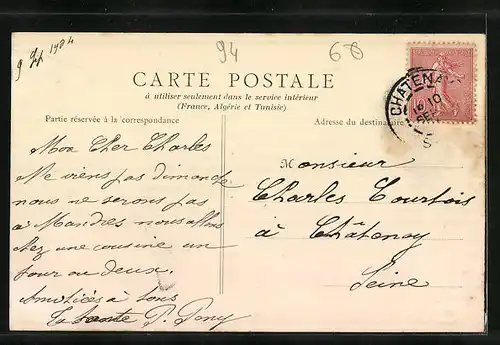 9 7bre 1904
94
68
CARTE POSTALE
à utiliser seulement dans le service intérieur
(France, Algérie et Tunisie)
Partie réservée à la correspondance
Adresse du destinataire
CHATENAY
10
S
Mon Cher Charles
Ne viens pas dimanche
nous ne serons pas
à Mandres nous allons
chez une cousine un
jour ou deux.
Amitiés à tous
Ta tante P. Pony
Monsieur
Charles Courtois
à Châtenay
Seine